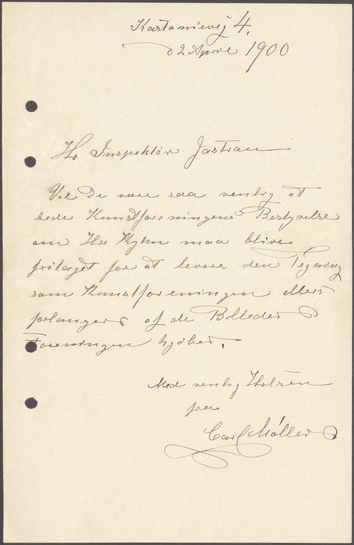 Kastanievej 4.
d 2 April 1900
Hr Inspektör Jastrau
Vil De være saa venlig at
bede Kunstforeningens Bestyrelse
om Hr Kyhn maa blive
fritaget for at levere den Tegning
som Kunstforeningen
forlanger af de Billeder
Foreningen kjøber.
Med venlig Hilsen
fra
Carl Møller